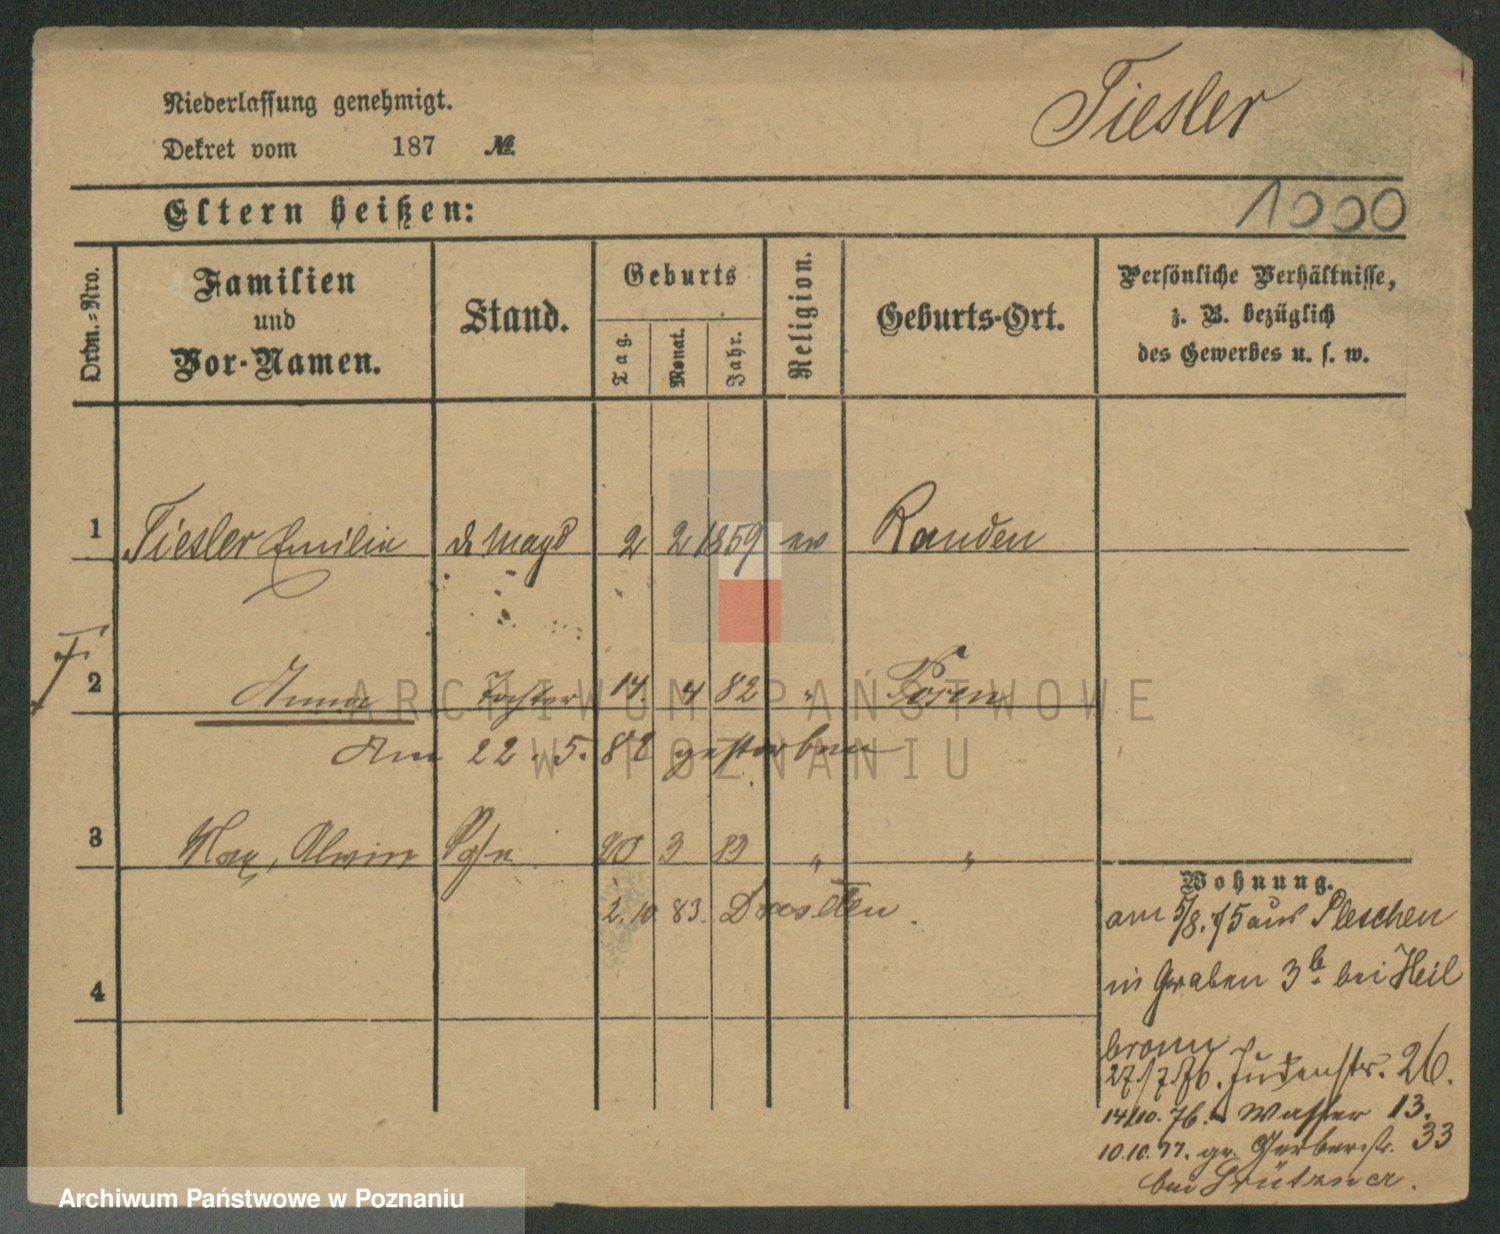 Niederlassung genehmigt.
Tiesler
Dekret vom 187 №
Eltern heißen:
1000
Ordn.-Nro.
Familien
und
Vor-Namen.
Stand.
Geburts
Tag.
Monat.
Jahr.
Religion.
Geburts-Ort.
Persönliche Verhältnisse,
z. B. bezüglich
des Gewerbes u. s. w.
1 Tiesler Emilie d. Magd 2 2 1859 ev Randen
2 Anna Tochter 14. 4 82 " Posen
Am 22. 5. 82 gestorben
3 Max, Alwin 20 3 83 " "
2. 10. 83. Dresden.
4
Wohnung.
am 5/8. 75 aus Pleschen
in Graben 3b. bei Heil
bronn
27/7.76. Judenstr. 26.
14/10. 76. Wasser 13.
10.10.77. gr. Gerberstr. 33
bei Grützner.
ARCHIWUM PAŃSTWOWE
W POZNANIU
Archiwum Państwowe w Poznaniu